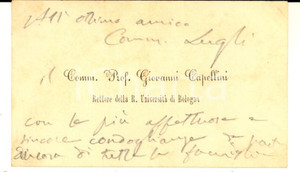 All' ottimo amico
Comm. Lugli
il Comm. Prof. Giovanni Capellini
Rettore della R. Università di Bologna
con le più affettuose e
sincere condoglianze
ancora di tutta la famiglia